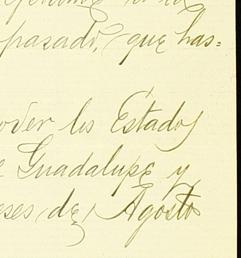 pasado, que has=
oder los Estados
e Guadalupe y
eses de Agosto